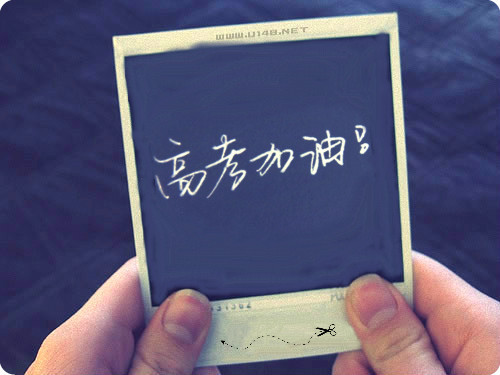 WWW.U148.NET
高考加油!